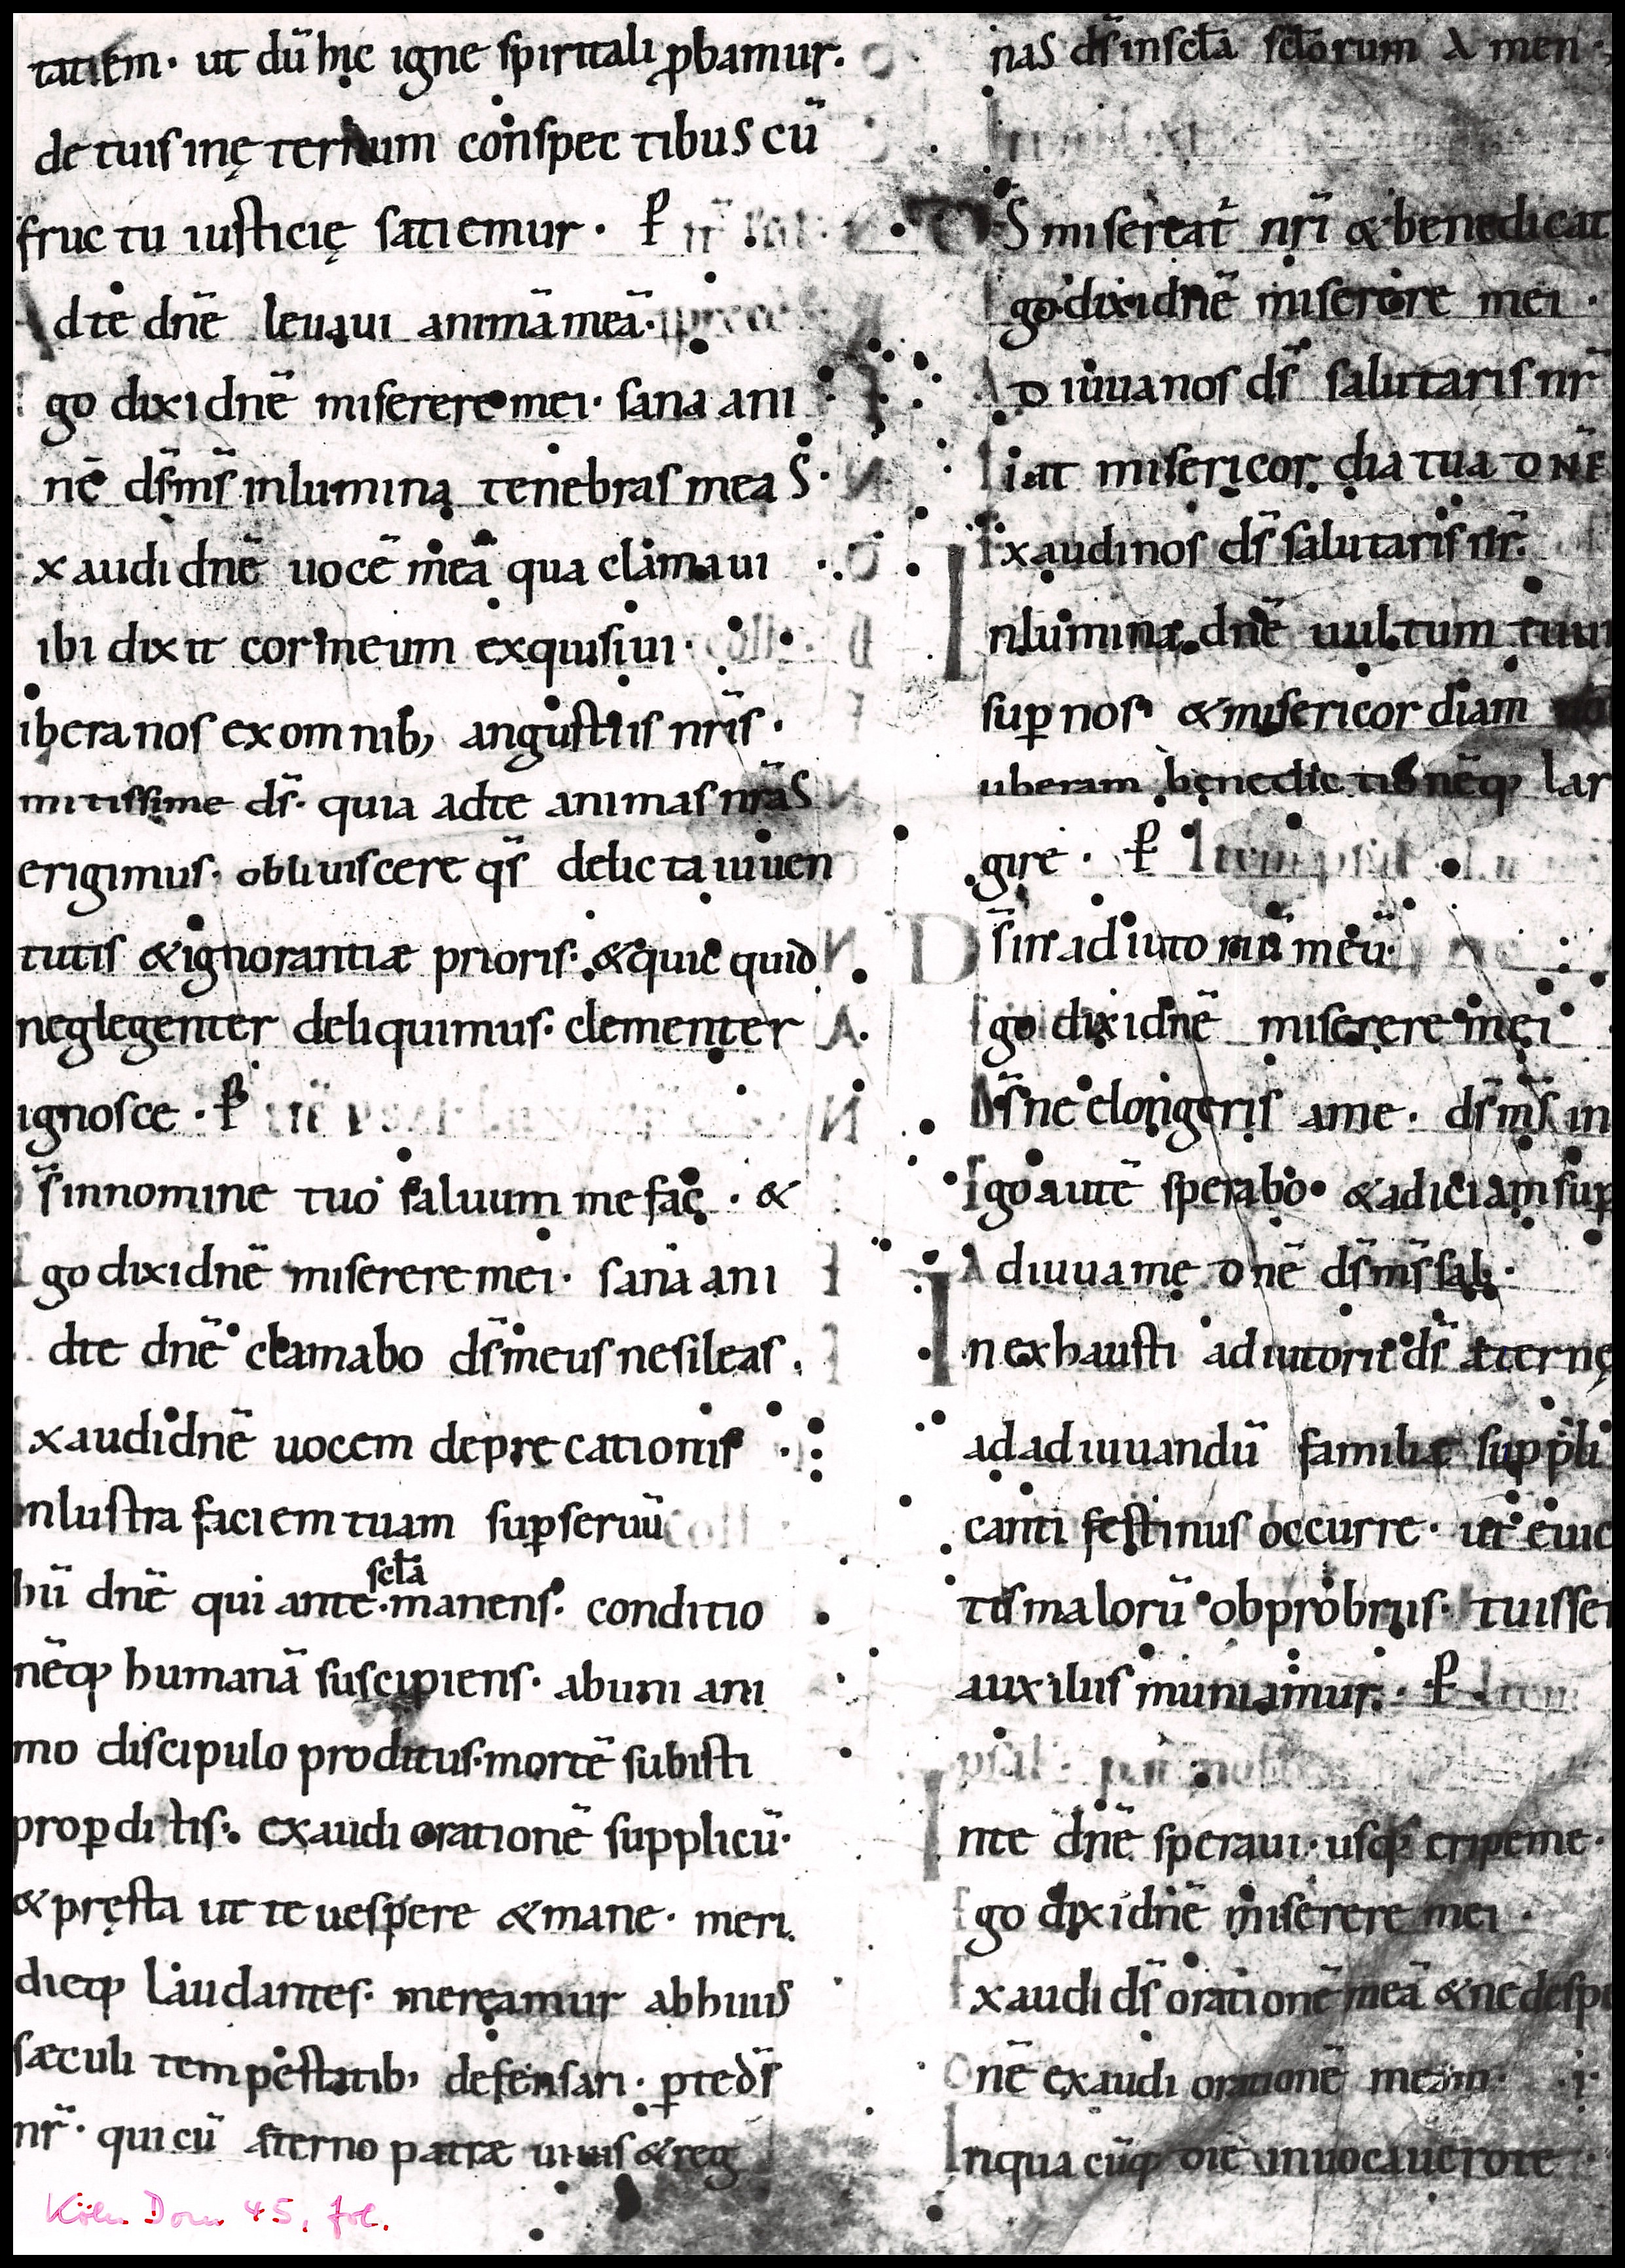 tatiem· ut dū hic igne spiritali ꝓbamur·
de tuis inęternum conspectibus cū
fructu iusticię satiemur· P
Adte dn̄e leuaui animā meā·
go dixi dn̄e miserere mei· sana ani
nē ds̄ ms̄ inlumina tenebras meas·
xaudi dn̄e uocē meā qua clamaui
ibi dixit cor meum exquisiui·
ibera nos ex omnib; angustiis nr̄is·
mitissime ds̄· quia adte animas nr̄as
erigimus· obliuiscere qs̄ delicta iuuen
tutis & ignorantiæ prioris· & quicquid
neglegenter deliquimus· clementer
ignosce· P
s̄ innomine tuo saluum me fac· &
go dixi dn̄e miserere mei· sana ani
dte dn̄e clamabo ds̄ meus ne sileas·
xaudi dn̄e uocem deprecationis
nlustra faciem tuam suꝑ seruū
hū dn̄e qui ante scl̄a manens· conditio
nēq; humanā suscipiens· ab uni ani
mo discipulo proditus· mortē subisti
pro ꝑditis· exaudi orationē supplicū·
& pręsta ut te uespere & mane· meri
dieq; laudantes· mereamur ab huius
sæculi tempestatib; defensari· ꝑ te ds̄
nr̄· qui cū æterno patre uiuis & reg
nas ds̄ in scl̄a scl̄orum Amen·
DS misereat̄ nr̄i & benedicat
go dixi dn̄e miserere mei·
Adiuua nos ds̄ salutaris nr̄
iat misericordia tua dn̄e
xaudi nos ds̄ salutaris nr̄·
Inlumina dn̄e uultum tuu
suꝑ nos· & misericordiam
uberam benedictionēq; lar
gire· P
Ds̄ in adiutoriū meū·
go dixi dn̄e miserere mei
Ds̄ ne elongeris a me· ds̄ ms̄ in
Ego autē sperabo· & adiciam suꝑ
Adiuua me dn̄e ds̄ ms̄ sal·
Inexhausti adiutorii ds̄ æternę
ad adiuuandū familiæ suppli
canti festinus occurre· ut eiuc
tis malorū obprobriis· tuisse
auxiliis muniamur· P
psal
Inte dn̄e speraui· usq; eripe me·
Ego dixi dn̄e miserere mei·
Exaudi ds̄ orationē meā & ne despi
Dn̄e exaudi orationē meam·
Inquacūq; die inuocauero te
Köln Dom 45, fol.